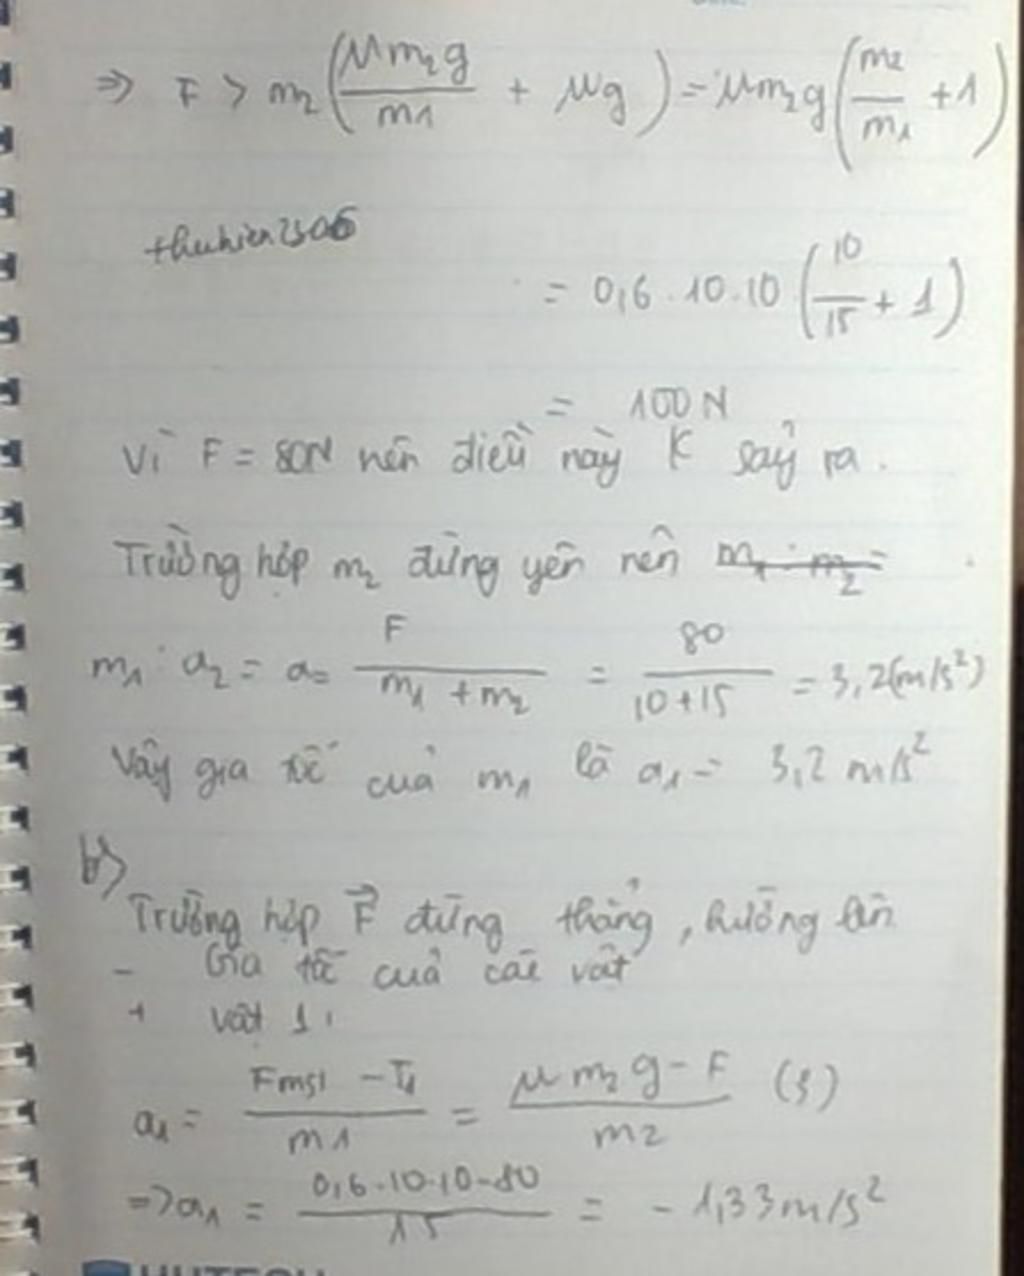 ⇒ F > m₂(μm₂g/m₁ + μg) = μm₂g(m₂/m₁ + 1)
thuhien2506
= 0,6 . 10 . 10 (10/15 + 1)
= 100N
Vì F = 80N nên điều này K sảy ra.
Trường hợp m₂ đứng yên nên
m₁ : a₂ = a = F/(m₁ + m₂) = 80/(10+15) = 3,2(m/s²)
Vậy gia tốc của m₁ là a₁ = 3,2 m/s²
b>
Trường hợp F⃗ đứng thẳng, hướng lên
- Gia tốc của các vật
+ vật 1:
a₁ = (Fms1 - T₁)/m1 = (μm₂g - F)/m2 (3)
=> a₁ = (0,6.10.10-80)/15 = - 1,33m/s²
HUTECH